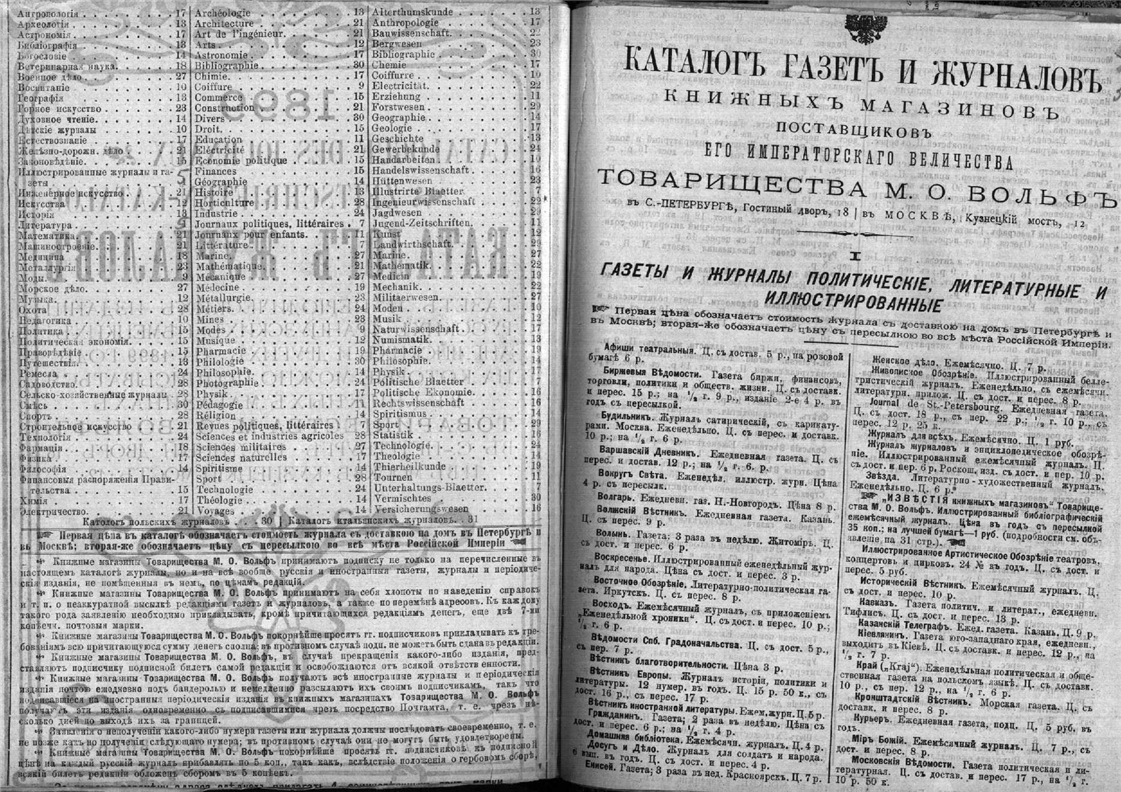 Антропологія 17
Археологія 13
Астрономія 17
Библіографія 13
Богословіе 14
Ветеринарная наука. 18
Военное дѣло 27
Воспитаніе 10
Географія 13
Горное искусство 23
Духовное чтеніе. 14
Дѣтскіе журналы 10
Естествознаніе 17
Желѣзно-дорожн. дѣло 21
Законовѣдѣніе. 15
Иллюстрированные журналы и га-
зеты 5
Инженерное искусство 21
Искусства 11
Исторія 13
Литература 5
Математика 21
Машиностроеніе. 21
Медицина 18
Металлургія 23
Моды
Морское дѣло. 27
Музыка. 12
Охота 28
Педагогика 10
Политика 5
Политическая экономія. 15
Правовѣдѣніе 15
Путешествія. 13
Ремесла 24
Садоводство. 28
Сельско-хозяйственные журналы 28
Смѣсь 30
Спортъ 28
Строительное искусство 21
Технологія 24
Фармація 18
Физика 17
Философія 14
Финансовыя распоряженія Прави-
тельства 15
Химія 17
Электричество. 21
Archéologie 13
Architecture 21
Art de l'ingénieur. 21
Arts 12
Astronomie 17
Bibliographie 30
Chimie. 17
Coiffure 9
Commerce 15
Construction 21
Divers 30
Droit. 15
Education 11
Eléctricité 21
Economie politique 15
Finances 15
Géographie 14
Histoire 13
Horticulture 28
Industrie 24
Journaux politiques, littéraires 7
Journaux pour enfants. 11
Littérature. 7
Marine. 27
Mathématique. 21
Mécanique 27
Médecine 19
Métallurgie. 23
Métiers. 24
Mines 23
Modes 9
Musique 12
Pharmacie 19
Philologie 30
Philosophie. 14
Photographie 24
Physik 17
Pédagogie 11
Réligion 14
Revues politiques, littéraires 7
Sciences et industries agricoles 28
Sciences militaires 27
Sciences naturelles 17
Spiritisme 14
Sport 28
Technologie 24
Théologie 14
Voyages 14
Alterthumskunde 13
Anthropologie 17
Bauwissenschaft. 22
Bergwesen 23
Bibliographie 30
Chemie 17
Coiffure. 10
Electricität. 22
Erziehung 11
Forstwesen. 29
Geographie 14
Geologie 17
Geschichte 13
Gewerbekunde 24
Handarbeiten 10
Handelswissenschaft 16
Hüttenwesen 23
Illustrirte Blaetter. 7
Ingenieurwissenschaft 22
Jagdwesen 29
Jugend-Zeitschriften. 11
Kunst 12
Landwirthschaft. 29
Marine. 27
Mathematik. 22
Medicin 19
Mechanik. 22
Militaerwesen. 27
Moden 10
Musik 12
Naturwissenschaft 17
Numismatik. 13
Pharmacie 19
Philosophie. 14
Physik 17
Politische Blaetter 7
Politische Ekonomie. 16
Rechtswissenschaft 16
Spiritismus 14
Sport 29
Statistik 16
Technologie. 24
Theologie 14
Thierheilkunde 19
Tournen 11
Unterhaltungs-Blaetter. 7
Vermischtes 30
Versicherungswesen 16
Каталогъ польскихъ журналовъ 30 | Каталогъ итальянскихъ журналовъ. 31
Первая цѣна въ каталогѣ обозначаетъ стоимость журнала съ доставкою на домъ въ Петербургѣ и
въ Москвѣ; вторая-же обозначаетъ цѣну съ пересылкою во всѣ мѣста Россійской Имперіи
Книжные магазины Товарищества М. О. Вольфъ принимаютъ подписку не только на перечисленные въ
настоящемъ каталогѣ журналы, но и на всѣ вообще русскія и иностранныя газеты, журналы и періодиче-
скіе изданія, не помѣщенныя въ немъ, по цѣнамъ редакцій.
Книжные магазины Товарищества М. О. Вольфъ принимаютъ на себя хлопоты по наведенію справокъ
и т. п. о неаккуратной высылкѣ редакціями газетъ и журналовъ, а также по перемѣнѣ адресовъ. Къ каждому
такого рода заявленію необходимо прикладывать, кромѣ причитающихся редакціямъ денегъ, еще двѣ 7-ми
копѣечн. почтовыя марки.
Книжные магазины Товарищества М. О. Вольфъ покорнѣйше просятъ гг. подписчиковъ прикладывать къ тре-
бованіямъ всю причитающую сумму денегъ сполна, въ противномъ случаѣ подп. не можетъ быть сдана въ редакціи.
Книжные магазины Товарищества М. О. Вольфъ, въ случаѣ прекращенія какого-либо изданія, пред-
ставляютъ подписчику подписной билетъ самой редакціи и освобождаются отъ всякой отвѣтственности.
Книжные магазины Товарищества М. О. Вольфъ получаютъ всѣ иностранные журналы и періодическія
изданія почти ежедневно подъ бандеролью и немедленно высылаютъ ихъ своимъ подписчикамъ, такъ что
подписавшіеся на иностранныя періодическія изданія въ книжныхъ магазинахъ Товарищества М. О. Вольфъ
получаютъ эти изданія одновременно съ подписавшимися чрезъ посредство Почтамта, т. е. чрезъ нѣ-
сколько дней по выходѣ ихъ за границей.
Заявленія о неполученіи какого-либо номера газеты или журнала должны послѣдовать своевременно, т. е.
не позже какъ по полученіи слѣдующаго номера; въ противномъ случаѣ они не могутъ быть удовлетворены.
Книжные магазины Товарищества М. О. Вольфъ покорнѣйше просятъ гг. подписчиковъ къ подписной
цѣнѣ на каждый русскій журналъ прибавлять по 5 коп., такъ какъ, вслѣдствіе положенія о гербовомъ сборѣ,
всякій билетъ редакціи обложенъ сборомъ въ 5 копѣекъ.
КАТАЛОГЪ ГАЗЕТЪ И ЖУРНАЛОВЪ
КНИЖНЫХЪ МАГАЗИНОВЪ
ПОСТАВЩИКОВЪ
ЕГО ИМПЕРАТОРСКАГО ВЕЛИЧЕСТВА
ТОВАРИЩЕСТВА М. О. ВОЛЬФЪ
въ С.-ПЕТЕРБУРГѢ, Гостиный дворъ, 18 | въ МОСКВѢ, Кузнецкій мостъ, 12
I
ГАЗЕТЫ И ЖУРНАЛЫ ПОЛИТИЧЕСКІЕ, ЛИТЕРАТУРНЫЕ И
ИЛЛЮСТРИРОВАННЫЕ
Первая цѣна обозначаетъ стоимость журнала съ доставкою на домъ въ Петербургѣ и
въ Москвѣ; вторая-же обозначаетъ цѣну съ пересылкою во всѣ мѣста Россійской Имперіи.
Афиши театральныя. Ц. съ достав. 5 р., на розовой
бумагѣ 6 р.
Биржевыя Вѣдомости. Газета биржи, финансовъ,
торговли, политики и обществ. жизни. Ц. съ доставк.
и перес. 15 р.; на ½ г. 9 р., изданіе 2-е 4 р. въ
годъ съ пересылкой.
Будильникъ. Журналъ сатирическій, съ карикату-
рами. Москва. Еженедѣльно. Ц. съ перес. и доставк.
10 р.; на ½ г. 6 р.
Варшавскій Дневникъ. Ежедневная газета. Ц. съ
перес. и достав. 12 р.; на ½ г. 6. р.
Вокругъ Свѣта. Еженедѣл. иллюстр. журн. Цѣна
4 р. съ пересылк.
Волгарь. Ежедневн. газ. Н.-Новгородъ. Цѣна 8 р.
Волжскій Вѣстникъ. Ежедневная газета. Казань.
Ц. съ перес. 9 р.
Волынь. Газета; 3 раза въ недѣлю. Житоміръ. Ц.
съ дост. и перес. 6 р.
Воскресенье. Иллюстрированный еженедѣльный жур-
налъ для народа. Цѣна съ дост. и перес. 3 р.
Восточное Обозрѣніе. Литературно-политическая га-
зета. Иркутскъ. Ц. съ перес. 8 р.
Восходъ. Ежемѣсячный журналъ, съ приложеніемъ
„Еженедѣльной хроники". Ц. съ дост. и перес. 10 р.;
½ г. 6 р.
Вѣдомости Спб. Градоначальства. Ц. съ дост. 5 р.,
съ пер. 7 р.
Вѣстникъ благотворительности. Цѣна 3 р.
Вѣстникъ Европы. Журналъ исторіи, политики и
литературы. 12 нумер. въ годъ. Ц. 15 р. 50 к., съ
дост. 16 р., съ перес. 17 р.
Вѣстникъ иностранной литературы. Ежем. журн. Ц. 5 р.
Гражданинъ. Газета; 2 раза въ недѣлю. Цѣна съ
дост. и перес. 6 р.; на ½ г. 4 р.
Домашняя библіотека. Ежемѣсячн. журналъ. Ц. 4 р.
Досугъ и Дѣло. Журналъ для солдатъ и народа.
6 кн. въ годъ. Ц. съ дост. и перес. 4 р.
Енисей. Газета; 3 раза въ нед. Красноярскъ. Ц. 7 р.
Женское дѣло. Ежемѣсячно. Ц. 7 р.
Живописное Обозрѣніе. Иллюстрированный белле-
тристическій журналъ. Еженедѣльно, съ ежемѣсячн.
литературн. прилож. Ц. съ дост. и перес. 8 р.
Journal de St.-Petersbourg. Ежедневная газета.
Ц. съ дост. 18 р., съ пер. 22 р.; ½ г. 10 р., съ
перес. 12 р. 25 к.
Журналъ для всѣхъ. Ежемѣсячно. Ц. 1 руб.
Журналъ журналовъ и энциклопедическое обозрѣ-
ніе. Иллюстрированный ежемѣсячный журналъ. Ц.
съ дост. и пер. 6 р. Роскош. изд. съ дост. и пер. 10 р.
Звѣзда. Литературно-художественный журналъ.
Еженедѣльно. Ц. 6 р.
„ИЗВѢСТІЯ книжныхъ магазиновъ" Товарище-
ства М. О. Вольфъ. Иллюстрированный библіографическій
ежемѣсячный журналъ. Цѣна въ годъ съ пересылкой
35 коп.; на лучшей бумагѣ—1 руб. (подробности см. объ-
явленіе на 31 стр.).
Иллюстрированное Артистическое Обозрѣніе театровъ,
концертовъ и цирковъ. 24 № въ годъ. Ц. съ дост. и
перес. 5 руб.
Историческій Вѣстникъ. Ежемѣсячный журналъ. Ц.
съ дост. и перес. 10 р.
Кавказъ. Газета политич. и литерат., ежедневн.
Тифлисъ. Ц. съ дост. и перес. 13 р.
Казанскій Телеграфъ. Ежед. газета. Казань. Ц. 9 р.
Кіевлянинъ. Газета юго-западнаго края, ежедневн.,
выходитъ въ Кіевѣ. Ц. съ доставк. и перес. 12 р., на
½ г. 7 р.
Край („Kraj"). Еженедѣльная политическая и обще-
ственная газета на польскомъ языкѣ. Ц. съ доставк.
10 р., съ пер. 12 р., на ½ г. 6 р.
Кронштадтскій Вѣстникъ. Морская газета. Ц. съ
доставк. и перес. 8 р.
Курьеръ. Ежедневная газета, подп. Ц. 5 руб. въ
годъ.
Міръ Божій. Ежемѣсячный журналъ. Ц. 7 р., съ
дост. и перес. 8 р.
Московскія Вѣдомости. Газета политическая и ли-
тературная. Ц. съ достав. и перес. 17 р., на ½ г.
10 р. 50 к.